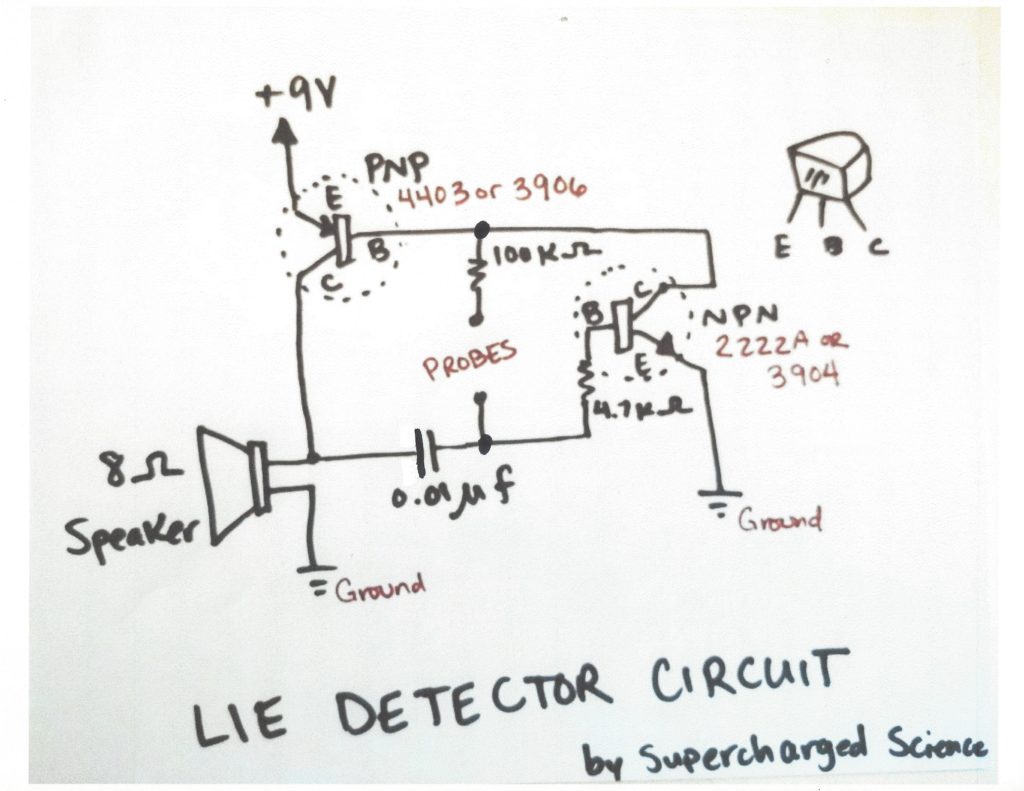 +9V
PNP
4403 or 3906
E
B
C
100KΩ
E B C
PROBES
B
C
E
NPN
2222A OR
3904
4.7KΩ
8Ω
Speaker
0.01µf
Ground
Ground
LIE DETECTOR CIRCUIT
by Supercharged Science